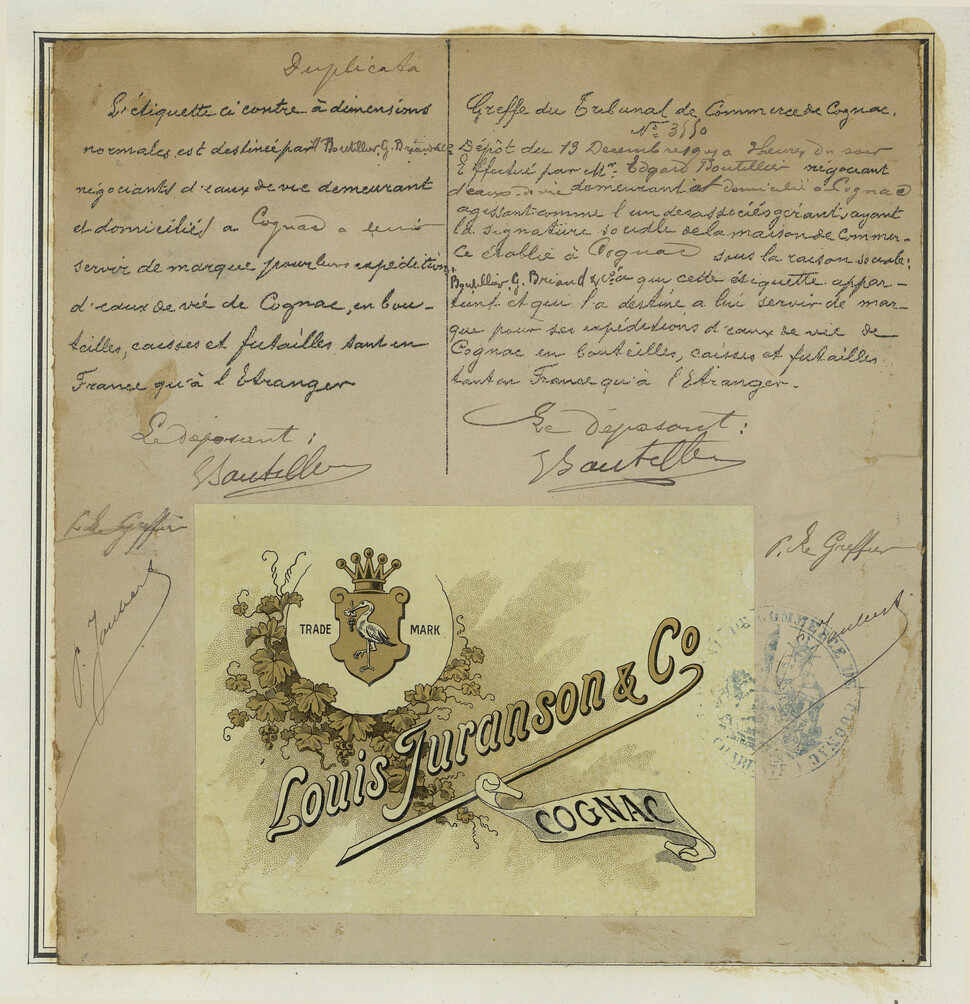 Duplicata
L'étiquette ci contre à dimensions
normales, est destinée par Boutillier G. Briand & C
négociants d'eaux de vie demeurant
et domiciliés a Cognac a leur
servir de marque pour leurs expéditions
d'eaux de vie de Cognac, en bou-
teilles, caisses et futailles tant en
France qu'à l'Etranger
Le déposant :
Boutillier
P. Le Greffier
P. Jaubert
Greffe du Tribunal de Commerce de Cognac.
Nº 3550
Dépôt du 13 Décembre heures du soir
Effectué par Mr. Edgard Boutillier négociant
d'eaux-de-vie demeurant et domicilié à Cognac
agissant comme l'un des associés gérants, ayant
la signature sociale de la maison de commer-
ce établie à Cognac sous la raison sociale:
Boutillier G. Briand & Cie à qui cette étiquette appar-
tient et qui l'a destine a lui servir de mar-
que pour ses expéditions d'eaux de vie de
Cognac en bouteilles, caisses et futailles
tant en France qu'à l'Etranger.
Le déposant :
Boutillier
P. Le Greffier
Jaubert
TRADE MARK
Louis Juranson & Co
COGNAC
DE COMMERCE DE COGNAC